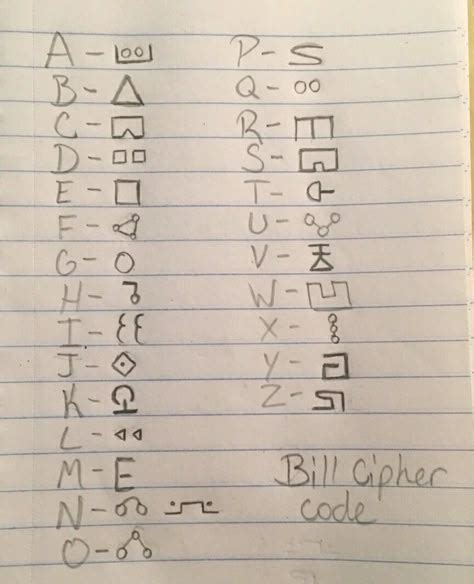 A -
B -
C -
D -
E -
F -
G -
H -
I -
J -
K -
L -
M - E
N -
O -
P - S
Q - oo
R -
S -
T -
U -
V -
W -
X -
Y -
Z -
Bill Cipher
code